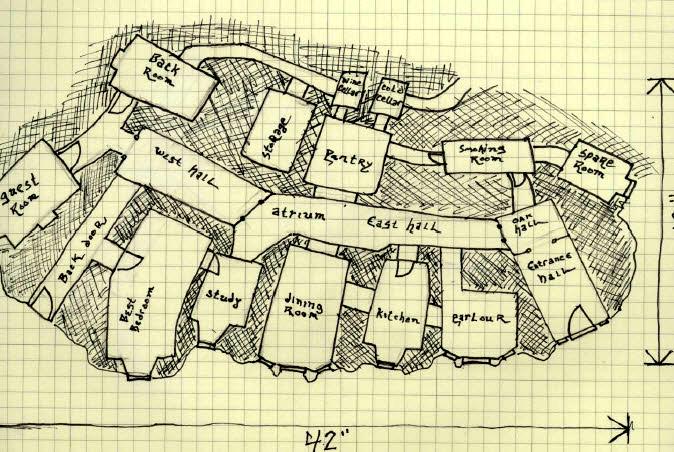 Back
Room
wine
cellar
cold
cellar
Storage
Pantry
Smoking
Room
spare
Room
guest
Room
west hall
atrium
East hall
OAK
hall
Entrance
hall
Back door
Best
Bedroom
study
dining
Room
kitchen
parlour
42"